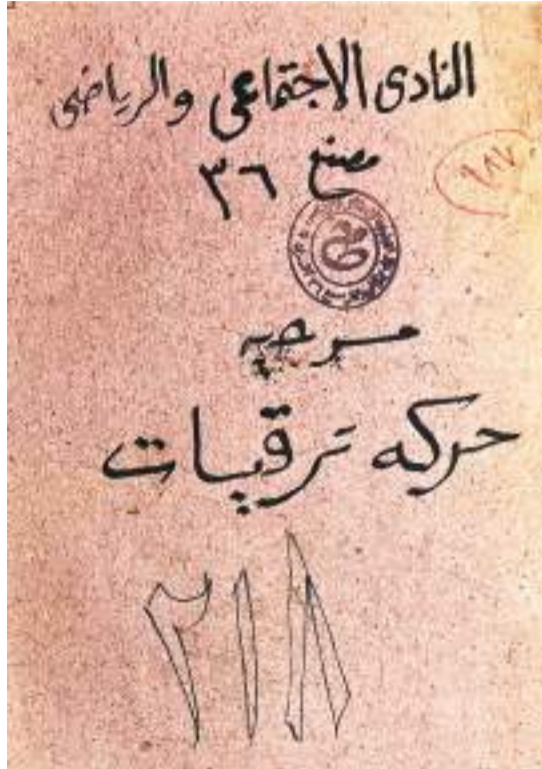 النادى الاجتماعى والرياضى
مصنع ٣٦
مسرحيه
حركه ترقيات
٢١٨